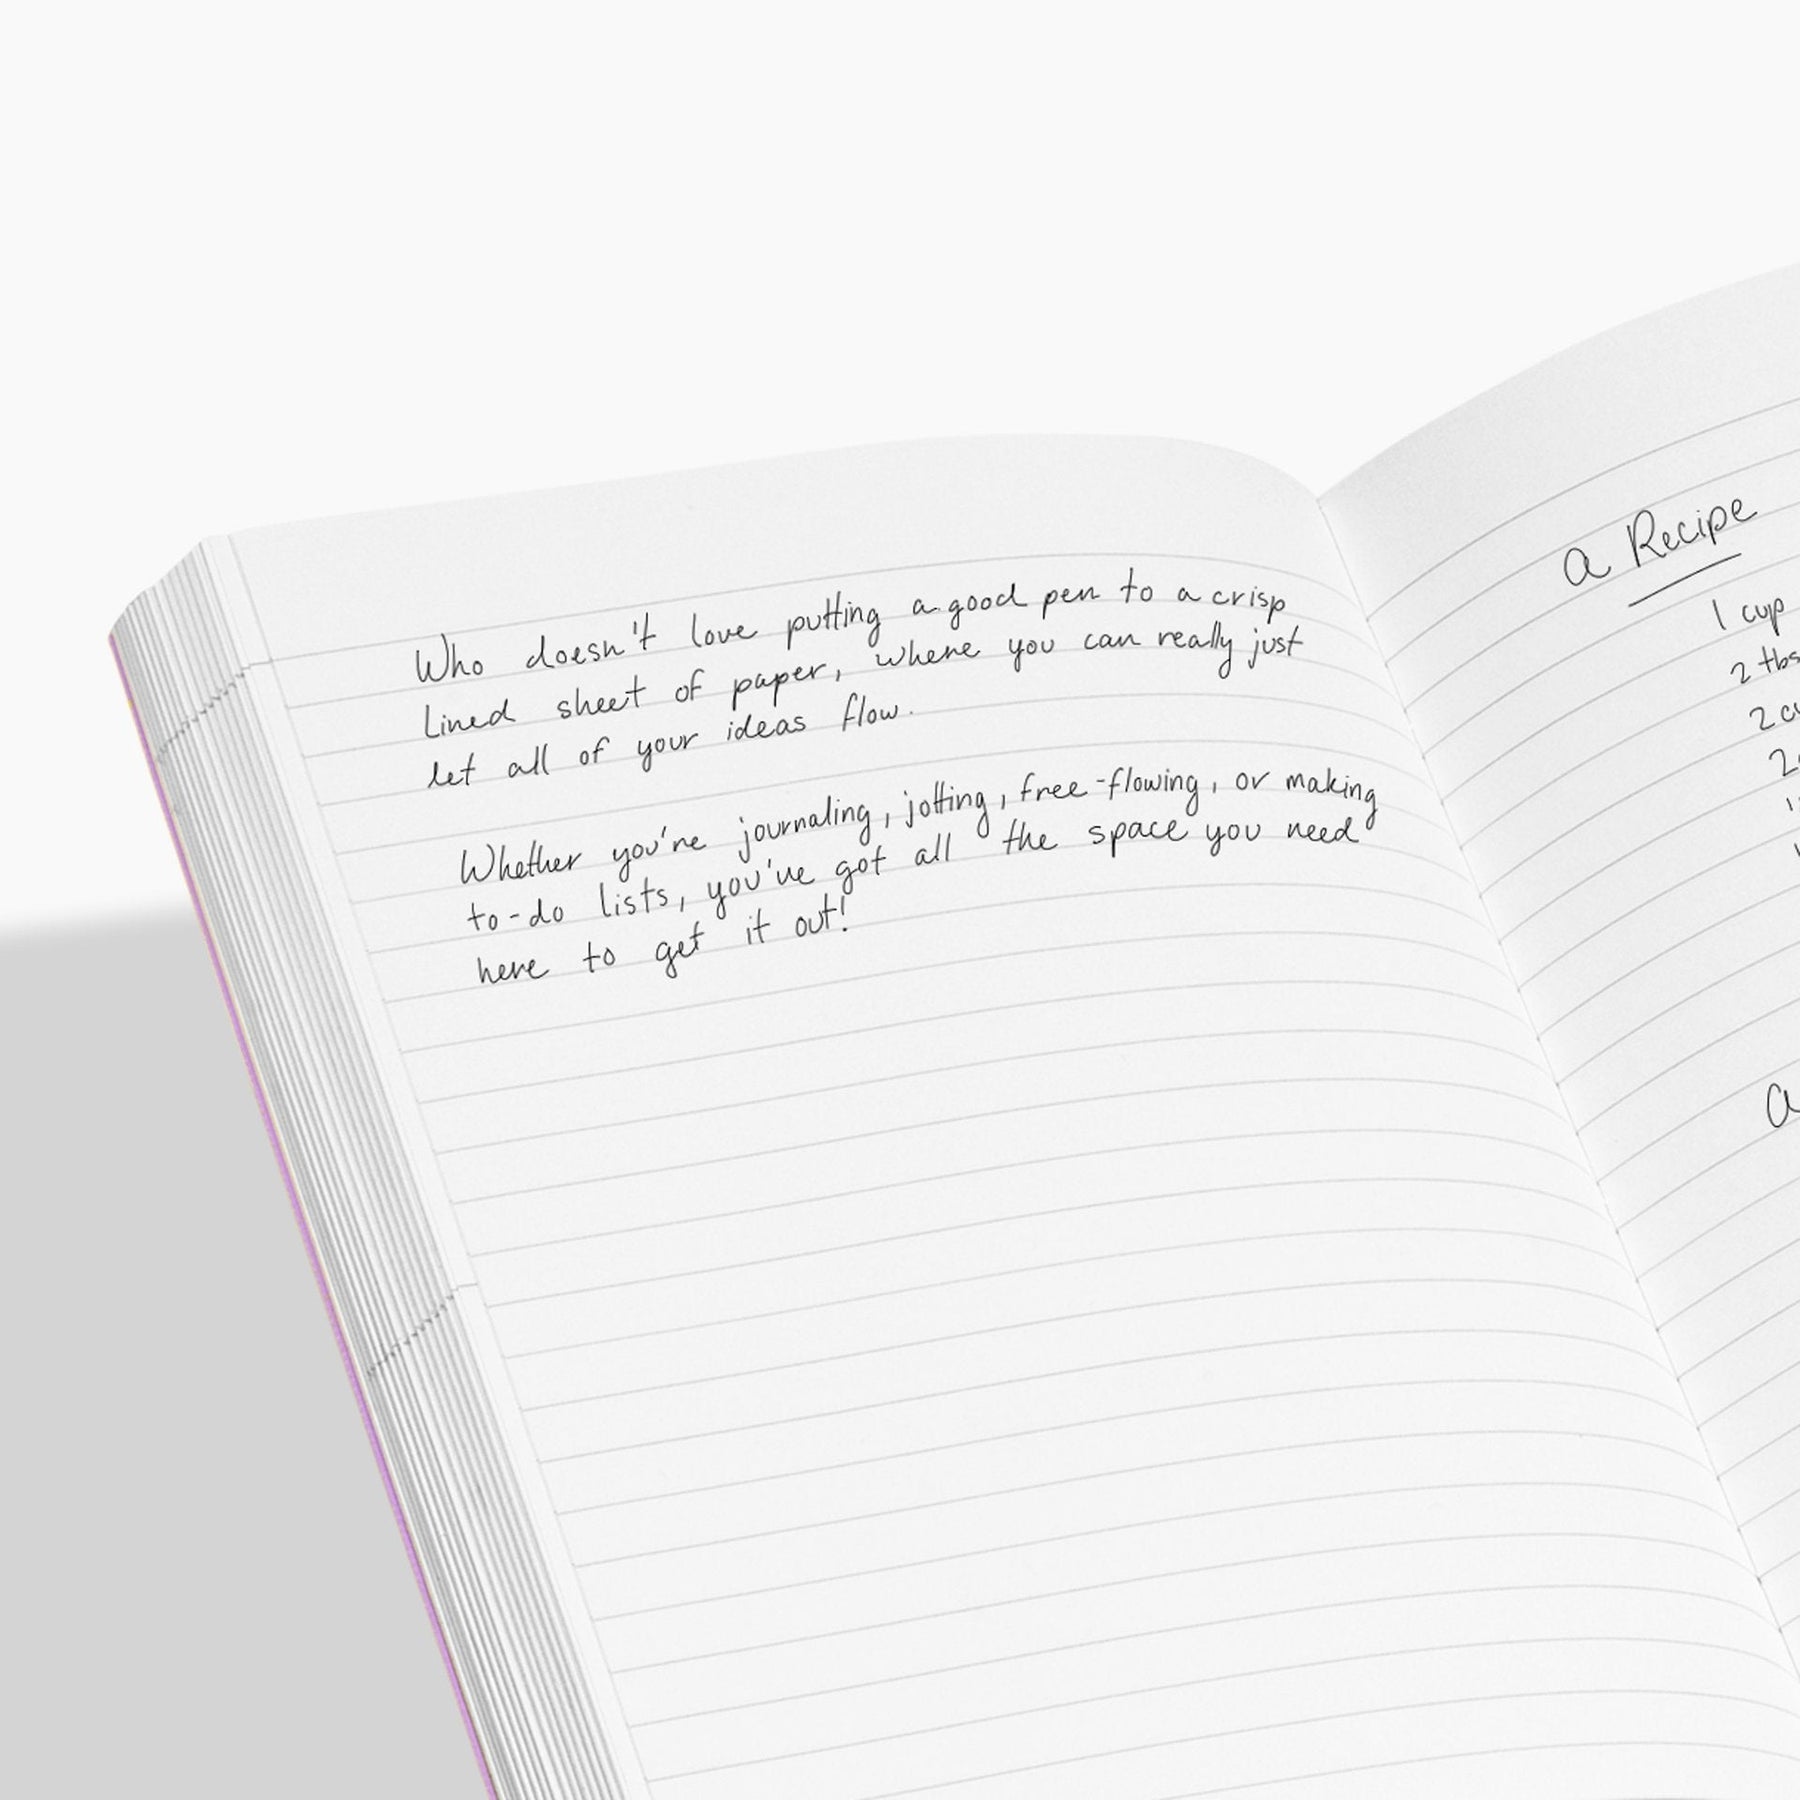 Who doesn't love putting a good pen to a crisp
lined sheet of paper, where you can really just
let all of your ideas flow.
Whether you're journaling, jotting, free-flowing, or making
to-do lists, you've got all the space you need
here to get it out!
a Recipe
1 cup
2 tbs
2 cu
2
1
a